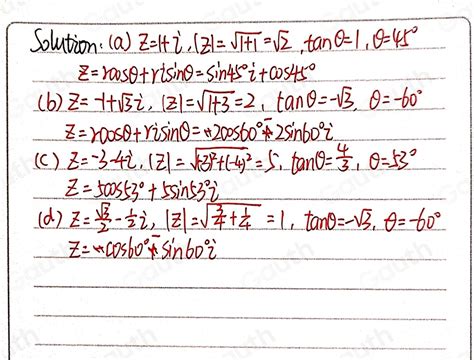 Solution: (a) Z=1+i, |Z|=√1+1=√2, tanθ=1, θ=45°
Z=rcosθ+risinθ=sin45°i+cos45°
(b) Z=-1+√3i, |Z|=√1+3=2, tanθ=-√3, θ=-60°
Z=rcosθ+risinθ= 2cos60° 2sin60°i
(c) Z=-3-4i, |Z|=√(-3)²+(-4)²=5, tanθ=4/3, θ=53°
Z=5cos53°+5sin53°i
(d) Z=√3/2-1/2i, |Z|=√3/4+1/4=1, tanθ=-√3, θ=-60°
Z= cos60° sin60°i